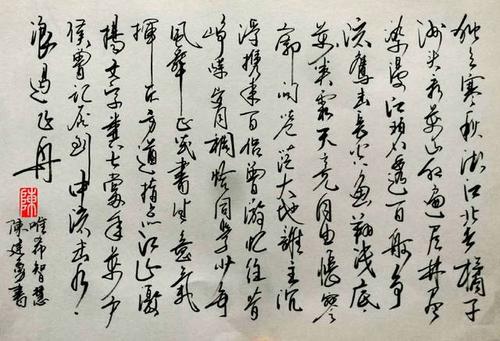 独立寒秋湘江北去橘子
洲头看万山红遍层林尽
染漫江碧透百舸争
流鹰击长空鱼翔浅底
万类霜天竞自由怅寥
廓问苍茫大地谁主沉
浮携来百侣曾游忆往昔
峥嵘岁月稠恰同学少年
风华正茂书生意气
挥斥方遒指点江山激
扬文字粪土当年万户
侯曾记否到中流击水
浪遏飞舟
陳
唯希智慧
陳建书